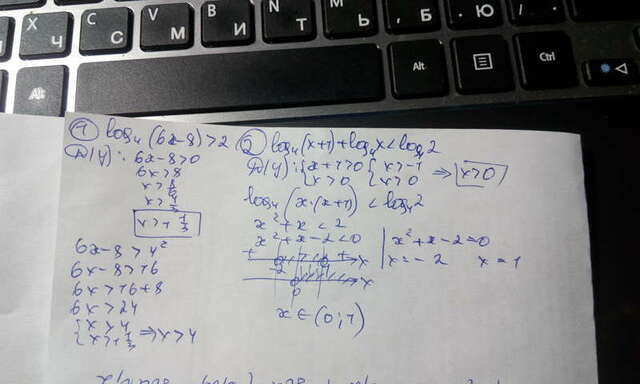 Х
Ч
С
V
М
В
И
N
Т
М
<
Б
>
Ю
/
Alt
Alt
Ctrl
① log₄(6x-8)>2
D(y): 6x-8>0
6x>8
x>8/6
x>4/3
x>1 1/3
6x-8>4²
6x-8>16
6x>16+8
6x>24
{x>4
{x>1 1/3 ⇒ x>4
② log₄(x+1)+log₄x<log₄2
D(y): {x+1>0 {x>-1
{x>0 {x>0 ⇒ x>0
log₄(x·(x+1))<log₄2
x²+x<2
x²+x-2<0 | x²+x-2=0
x=-2 x=1
+ - + x
-2 1
0 x
x∈(0;1)